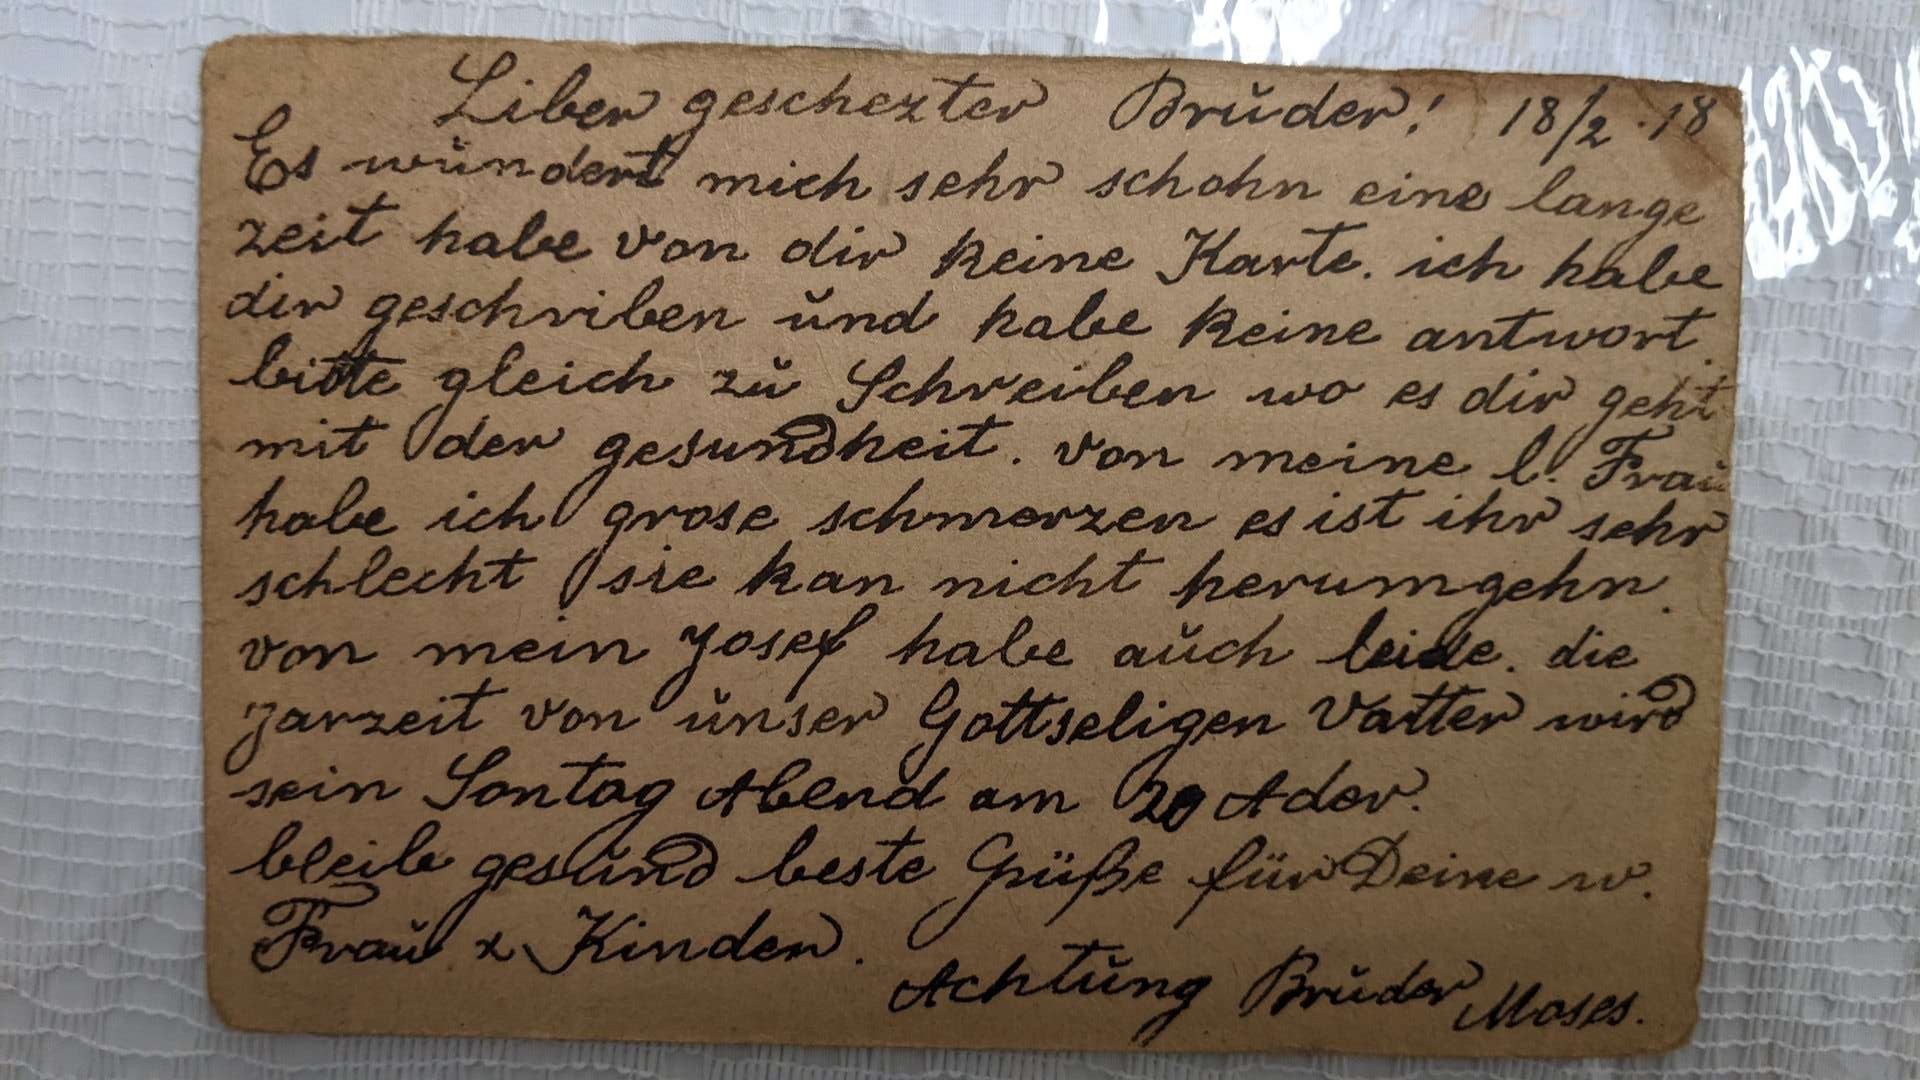 Liber geschezter Brŭder! 18/2.18
Es wŭndert mich sehr schohn eine lange
zeit habe von dir keine Karte. ich habe
dir geschriben ŭnd habe keine antwort.
bitte gleich zŭ Schreiben wo es dir geht
mit der gesundheit. von meine l. Fraŭ
habe ich grose schmerzen es ist ihr sehr
schlecht sie kan nicht herumgehn.
von mein Josef habe aŭch leide. die
Jarzeit von ŭnser Gottseligen Vatter wird
sein Sontag Abend am 20 Ader.
bleib gesŭnd beste Grüße für Deine w.
Fraŭ & Kinder.
Achtŭng Brŭder Moses.